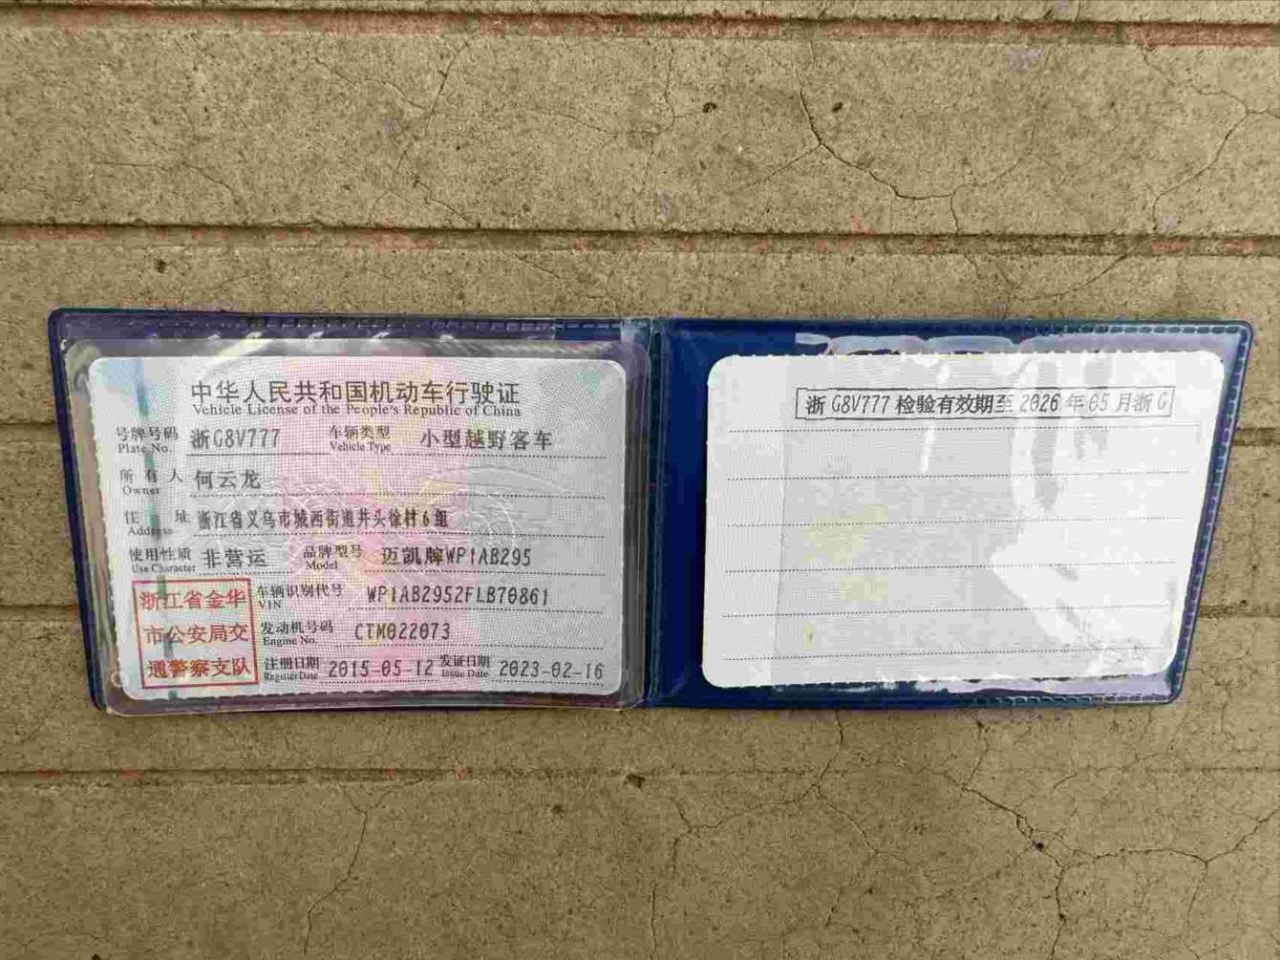 中华人民共和国机动车行驶证
Vehicle License of the People's Republic of China
号牌号码 浙G8V777 车辆类型 小型越野客车
Plate No. Vehicle Type
所有人 何云龙
Owner
住址 浙江省义乌市城西街道井头徐村6组
Address
使用性质 非营运 品牌型号 迈凯牌WP1AB295
Use Character Model
浙江省金华
市公安局交
通警察支队
车辆识别代号 WP1AB2952FLB70861
VIN
发动机号码 CTM022073
Engine No.
注册日期 2015-05-12 发证日期 2023-02-16
Register Date Issue Date
浙G8V777检验有效期至2026年05月浙G